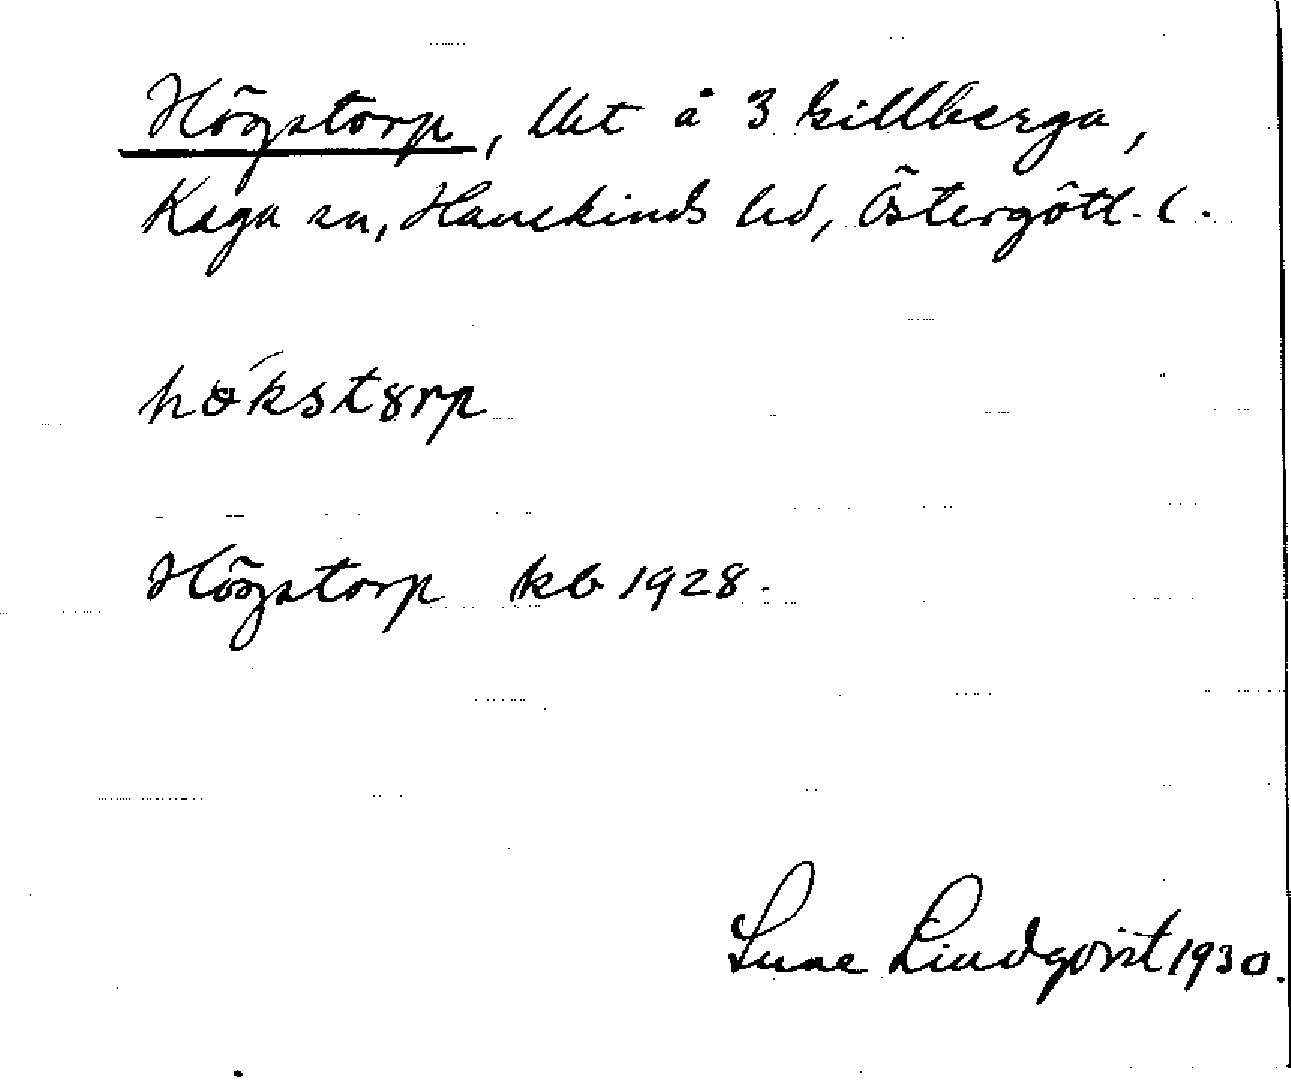 Högstorp, lht å 3 Gillberga,
Kaga sn, Hanekinds hd, Östergötl. l.
hǿkstȣrp
Högstorp kb 1928.
Sune Lindqvist 1930.